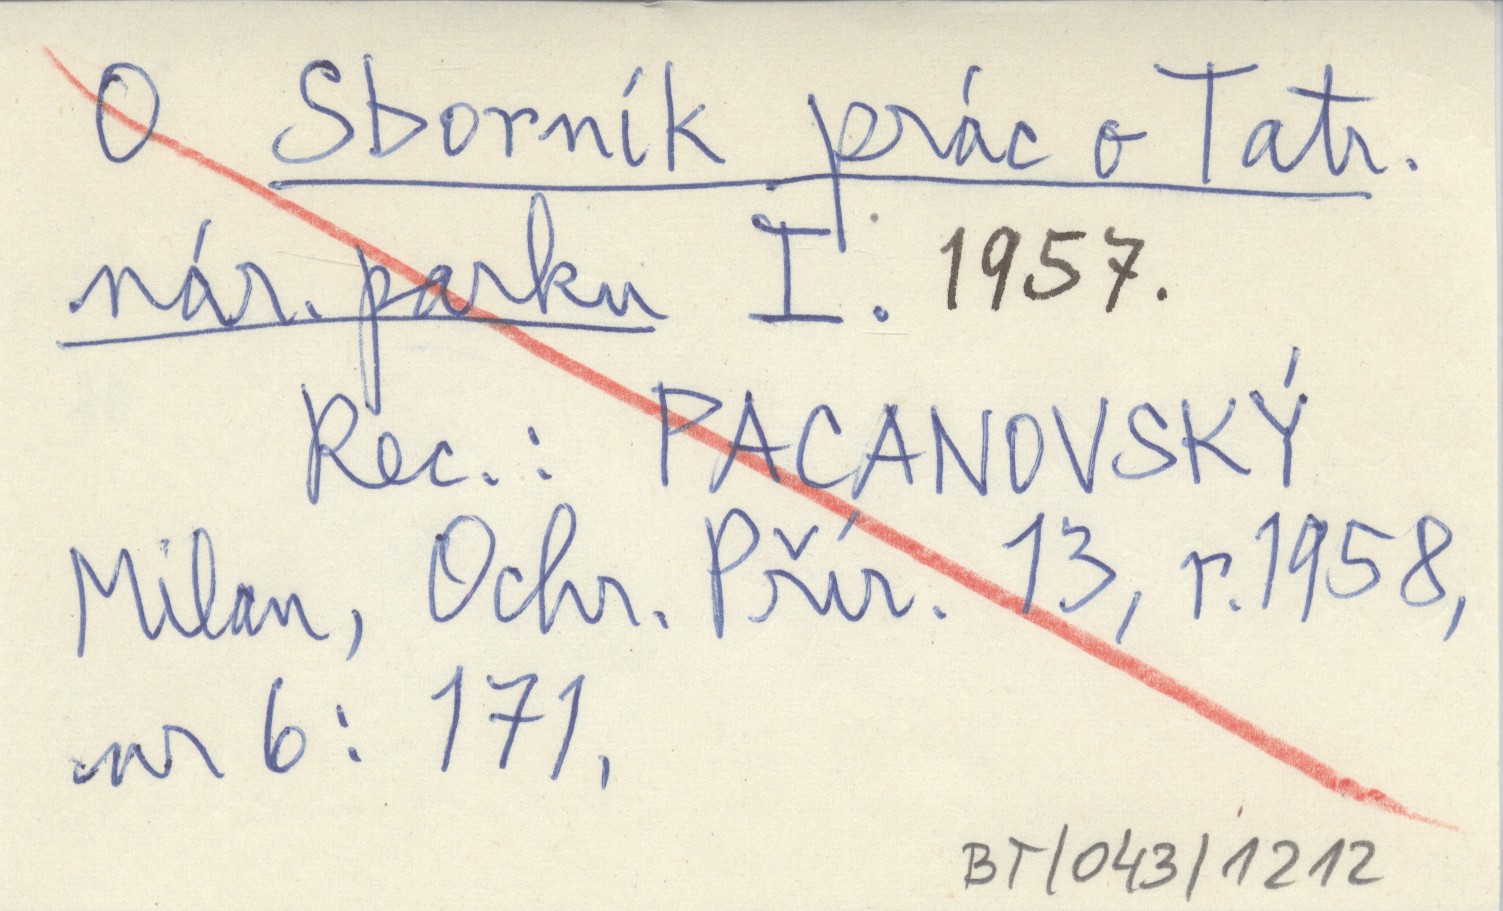 O Sborník prác o Tatr.
nár. parku I. 1957.
Rec.: PACANOVSKÝ
Milan, Ochr. Přír. 13, r. 1958,
nr 6: 171,
BT/043/1212